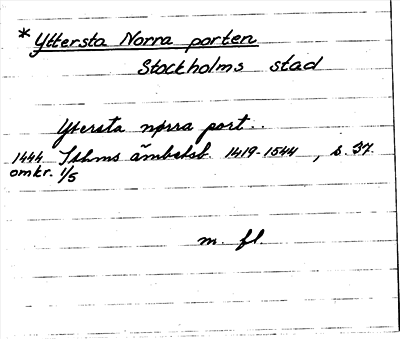 * Yttersta Norra porten
Stockholms stad
Ytersta nørra port..
1444 Sthms ämbetsb. 1419-1544, s. 37.
omkr. 1/5
m. fl.